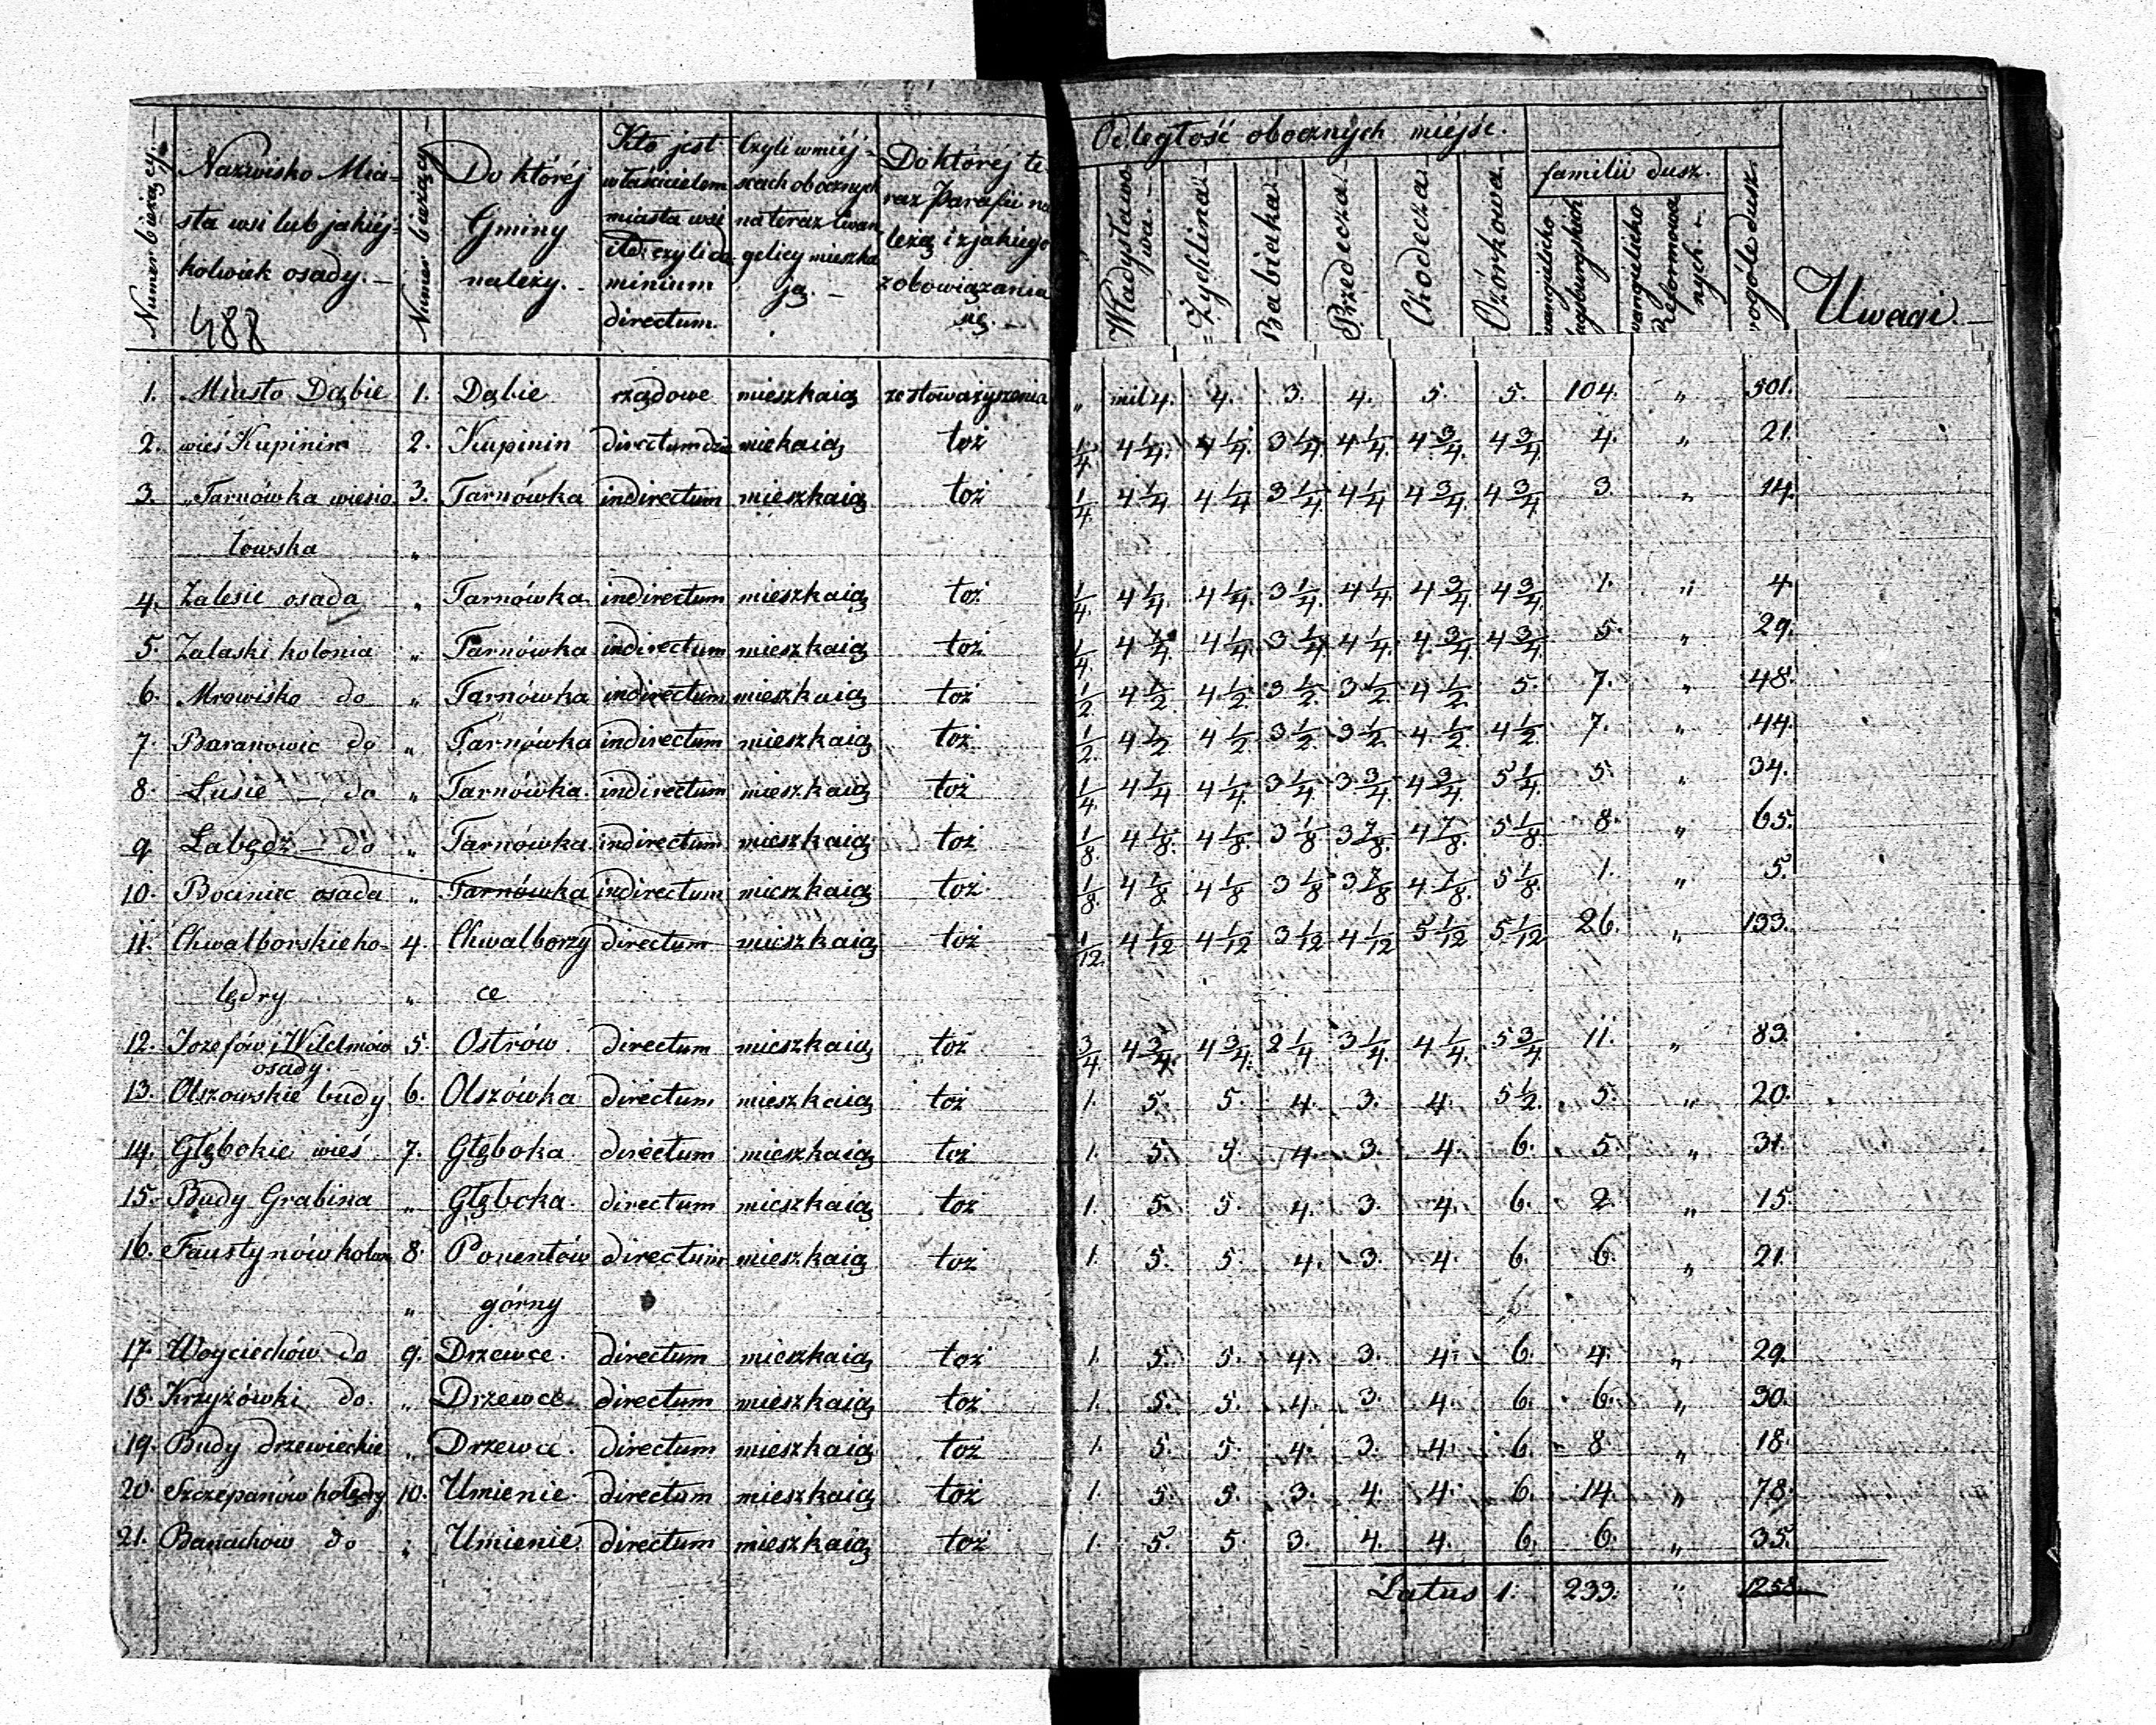 Numer bieżący.
Nazwisko Mia-
sta wsi lub jakiéj-
kolwiek osady.
488
Numer bieżący
Do któréj
Gminy
należy.
Kto jest
właścicielem
miasta wsi
itd. czyli do
minium
directum.
Czyli w miéj-
scach obocznych
na teraz Ewan
gelicy mieszka
ją.
Do któréj te-
raz Parafii na
leżą i z jakiego
zobowiązania
się.
Odległość obocznych miéjsc.
Władysławo
wa.
Żychlina
Babiaka
Przedecza
Chodecza
Ozórkowa
familii dusz.
wangielicko
augsburgskich
wangielicko
Reformowa
nych.
wogóle dusz.
Uwagi.
1. Miasto Dąbie 1. Dąbie rządowe mieszkaią ze stoważyszenia „ mil 4. 4. 3. 4. 5. 5. 104. „ 501.
2. wieś Kupinin 2. Kupinin directum miekaią toż 1/4. 4 1/4. 4 1/4. 3 1/4. 4 1/4. 4 3/4. 4 3/4. 4. „ 21.
3. Tarnówka wiesio 3. Tarnówka indirectum mieszkaią toż 1/4. 4 1/4 4 1/4 3 1/4 4 1/4 4 3/4. 4 3/4. 3. „ 14.
łowska „
4. Zalesie osada „ Tarnówka indirectum mieszkaią toż 1/4. 4 1/4. 4 1/4. 3 1/4. 4 1/4. 4 3/4. 4 3/4. 1. „ 4.
5. Zalaski kolonia „ Tarnówka indirectum mieszkaią toż 1/4. 4 1/4. 4 1/4. 3 1/4 4 1/4. 4 3/4. 4 3/4. 5. „ 29.
6. Mrowisko do „ Tarnówka indirectum mieszkaią toż 1/2 4 1/2 4 1/2. 3 1/2. 3 1/2. 4 1/2 5. 7. „ 48.
7. Baranowic do „ Tarnówka indirectum mieszkaią toż 1/2. 4 1/2 4 1/2 3 1/2. 3 1/2. 4 1/2. 4 1/2. 7. „ 44.
8. Lusie do „ Tarnówka indirectum mieszkaią toż 1/4 4 1/4 4 1/4. 3 1/4. 3 3/4. 4 3/4. 5 1/4 5. „ 34.
9 Łabędź do „ Tarnówka indirectum mieszkaią toż 1/8. 4 1/8. 4 1/8. 3 1/8 3 7/8. 4 7/8. 5 1/8. 8. „ 65.
10. Bociniec osada „ Tarnówka indirectum mieszkaią toż 1/8. 4 1/8 4 1/8 3 1/8 3 7/8 4 7/8. 5 1/8. 1. „ 5.
11. Chwalborskie ho- 4. Chwalborzy directum mieszkaią toż 1/12. 4 1/12 4 1/12 3 1/12 4 1/12 5 1/12 5 1/12 26. „ 133.
lędry „ ce
12. Jozefów i Wilelmów 5. Ostrów directum mieszkaią toż 3/4 4 3/4. 4 3/4. 2 1/4 3 1/4. 4 1/4. 5 3/4 11. „ 83.
osady.
13. Olszowskie budy 6. Olszówka directum mieszkaią toż 1. 5. 5. 4. 3. 4. 5 1/2. 5. „ 20.
14. Głębokie wieś 7. Głęboka directum mieszkaią toż 1. 5. 5. 4. 3. 4. 6. 5. „ 31.
15. Budy Grabina „ Głęboka directum mieszkaią toż 1. 5. 5. 4. 3. 4. 6. 2. „ 15.
16. Faustynów kolon 8. Ponentów directum mieszkaią toż 1. 5. 5. 4. 3. 4. 6. 6. „ 21.
„ górny
17. Woyciechów do 9. Drzewce. directum mieszkaią toż 1. 5. 5. 4. 3. 4. 6. 4. „ 29.
18. Krzyżówki do „ Drzewce. directum mieszkaią toż 1. 5. 5. 4. 3. 4. 6. 6. „ 30.
19. Budy drzewieckie „ Drzewce. directum mieszkaią toż 1. 5. 5. 4. 3. 4. 6. 8. „ 18.
20. Szczepanów holędry 10. Umienie. directum mieszkaią toż 1. 5. 5. 3. 4. 4. 6. 14. „ 78.
21. Banachów do „ Umienie. directum mieszkaią toż 1. 5. 5. 3. 4. 4. 6. 6. „ 35.
Latus 1. 233. „ 1258